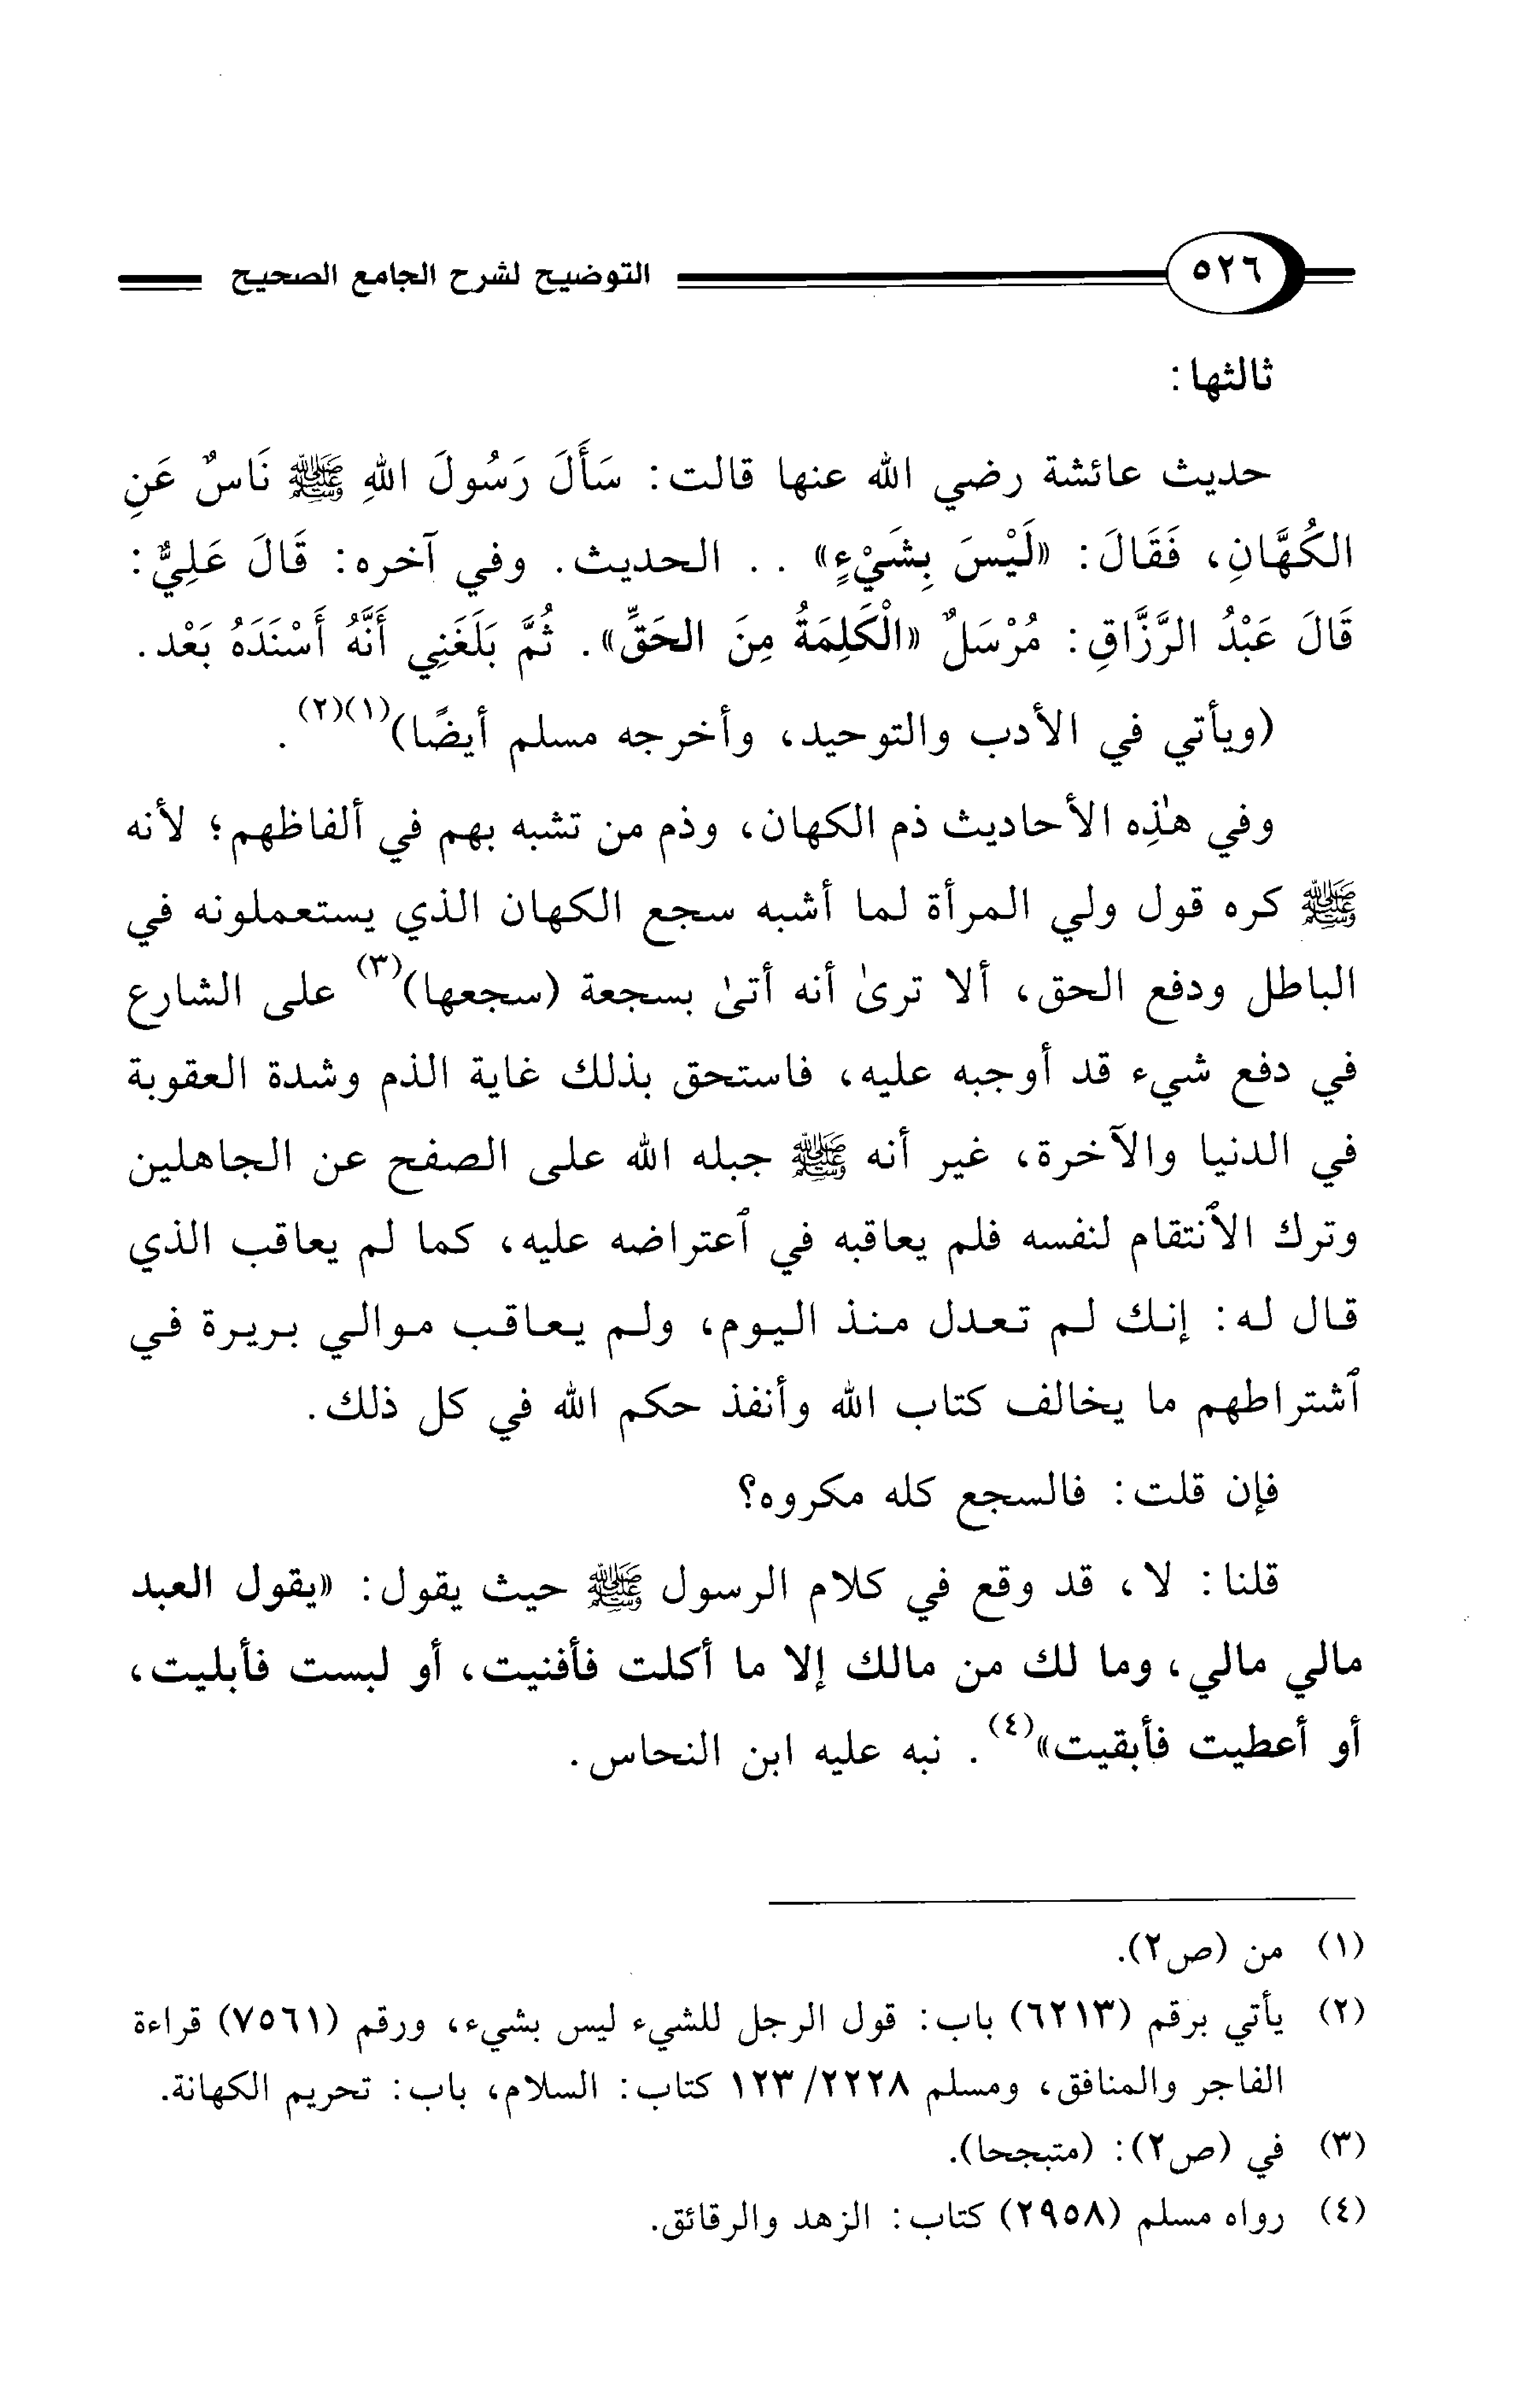 ٥٢٦ التوضيح لشرح الجامع الصحيح
ثالثها:
حديث عائشة رضي الله عنها قالت: سَأَلَ رَسُولَ اللهِ ﷺ نَاسٌ عَنِ
الكُهَّانِ، فَقَالَ: «لَيْسَ بِشَيْءٍ» . . الحديث. وفي آخره: قَالَ عَلِيٌّ:
قَالَ عَبْدُ الرَّزَّاقِ: مُرْسَلٌ «الْكَلِمَةُ مِنَ الحَقِّ». ثُمَّ بَلَغَنِي أَنَّهُ أَسْنَدَهُ بَعْد.
(ويأتي في الأدب والتوحيد، وأخرجه مسلم أيضًا)(١)(٢).
وفي هٰذِه الأحاديث ذم الكهان، وذم من تشبه بهم في ألفاظهم؛ لأنه
ﷺ كره قول ولي المرأة لما أشبه سجع الكهان الذي يستعملونه في
الباطل ودفع الحق، ألا ترىٰ أنه أتىٰ بسجعة (سجعها)(٣) على الشارع
في دفع شيء قد أوجبه عليه، فاستحق بذلك غاية الذم وشدة العقوبة
في الدنيا والآخرة، غير أنه ﷺ جبله الله على الصفح عن الجاهلين
وترك الٱنتقام لنفسه فلم يعاقبه في ٱعتراضه عليه، كما لم يعاقب الذي
قال له: إنك لم تعدل منذ اليوم، ولم يعاقب موالي بريرة في
ٱشتراطهم ما يخالف كتاب الله وأنفذ حكم الله في كل ذلك.
فإن قلت: فالسجع كله مكروه؟
قلنا: لا، قد وقع في كلام الرسول ﷺ حيث يقول: «يقول العبد
مالي مالي، وما لك من مالك إلا ما أكلت فأفنيت، أو لبست فأبليت،
أو أعطيت فأبقيت»(٤). نبه عليه ابن النحاس.
(١) من (ص٢).
(٢) يأتي برقم (٦٢١٣) باب: قول الرجل للشيء ليس بشيء، ورقم (٧٥٦١) قراءة
الفاجر والمنافق، ومسلم ٢٢٢٨/ ١٢٣ كتاب: السلام، باب: تحريم الكهانة.
(٣) في (ص٢): (متبجحا).
(٤) رواه مسلم (٢٩٥٨) كتاب: الزهد والرقائق.